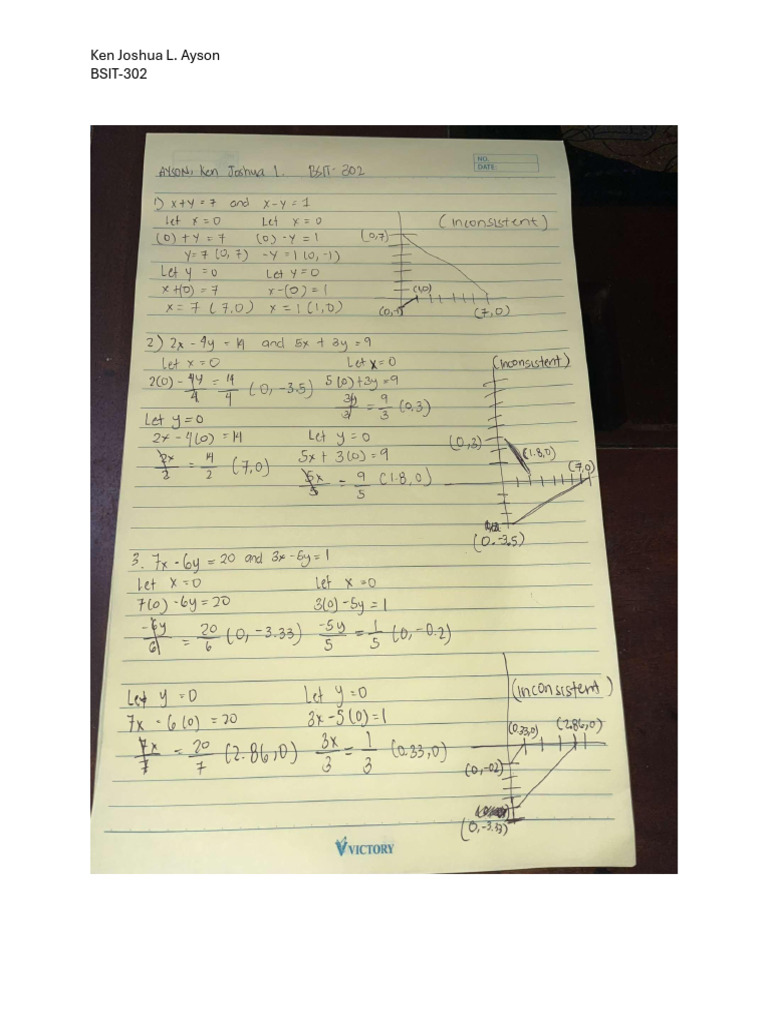 Ken Joshua L. Ayson
BSIT-302
NO.
DATE
AYSON, Ken Joshua L. BSIT-302
1) x+y=7 and x-y=1
Let x=0 Let x=0
(0)+y=7 (0)-y=1
y=7 (0,7) -y=1 (0,-1)
Let y=0 Let y=0
x+(0)=7 x-(0)=1
x=7 (7,0) x=1 (1,0)
(inconsistent)
(0,7)
(1,0)
(7,0)
2) 2x-4y=14 and 5x+3y=9
Let x=0 Let x=0
2(0)-4y/4=14/4 (0,-3.5) 5(0)+3y=9
3y/3=9/3 (0,3)
Let y=0
2x-4(0)=14 Let y=0
2x/2=14/2 (7,0) 5x+3(0)=9
5x/5=9/5 (1.8,0)
(inconsistent)
(0,3)
(1.8,0)
(7,0)
(0,-3.5)
3. 7x-6y=20 and 3x-5y=1
Let x=0 Let x=0
7(0)-6y=20 3(0)-5y=1
-6y/6=20/6 (0,-3.33) -5y/5=1/5 (0,-0.2)
Let y=0 Let y=0
7x-6(0)=20 3x-5(0)=1
7x/7=20/7 (2.86,0) 3x/3=1/3 (0.33,0)
(inconsistent)
(0.33,0)
(2.86,0)
(0,-02)
(0,-3.33)
VICTORY